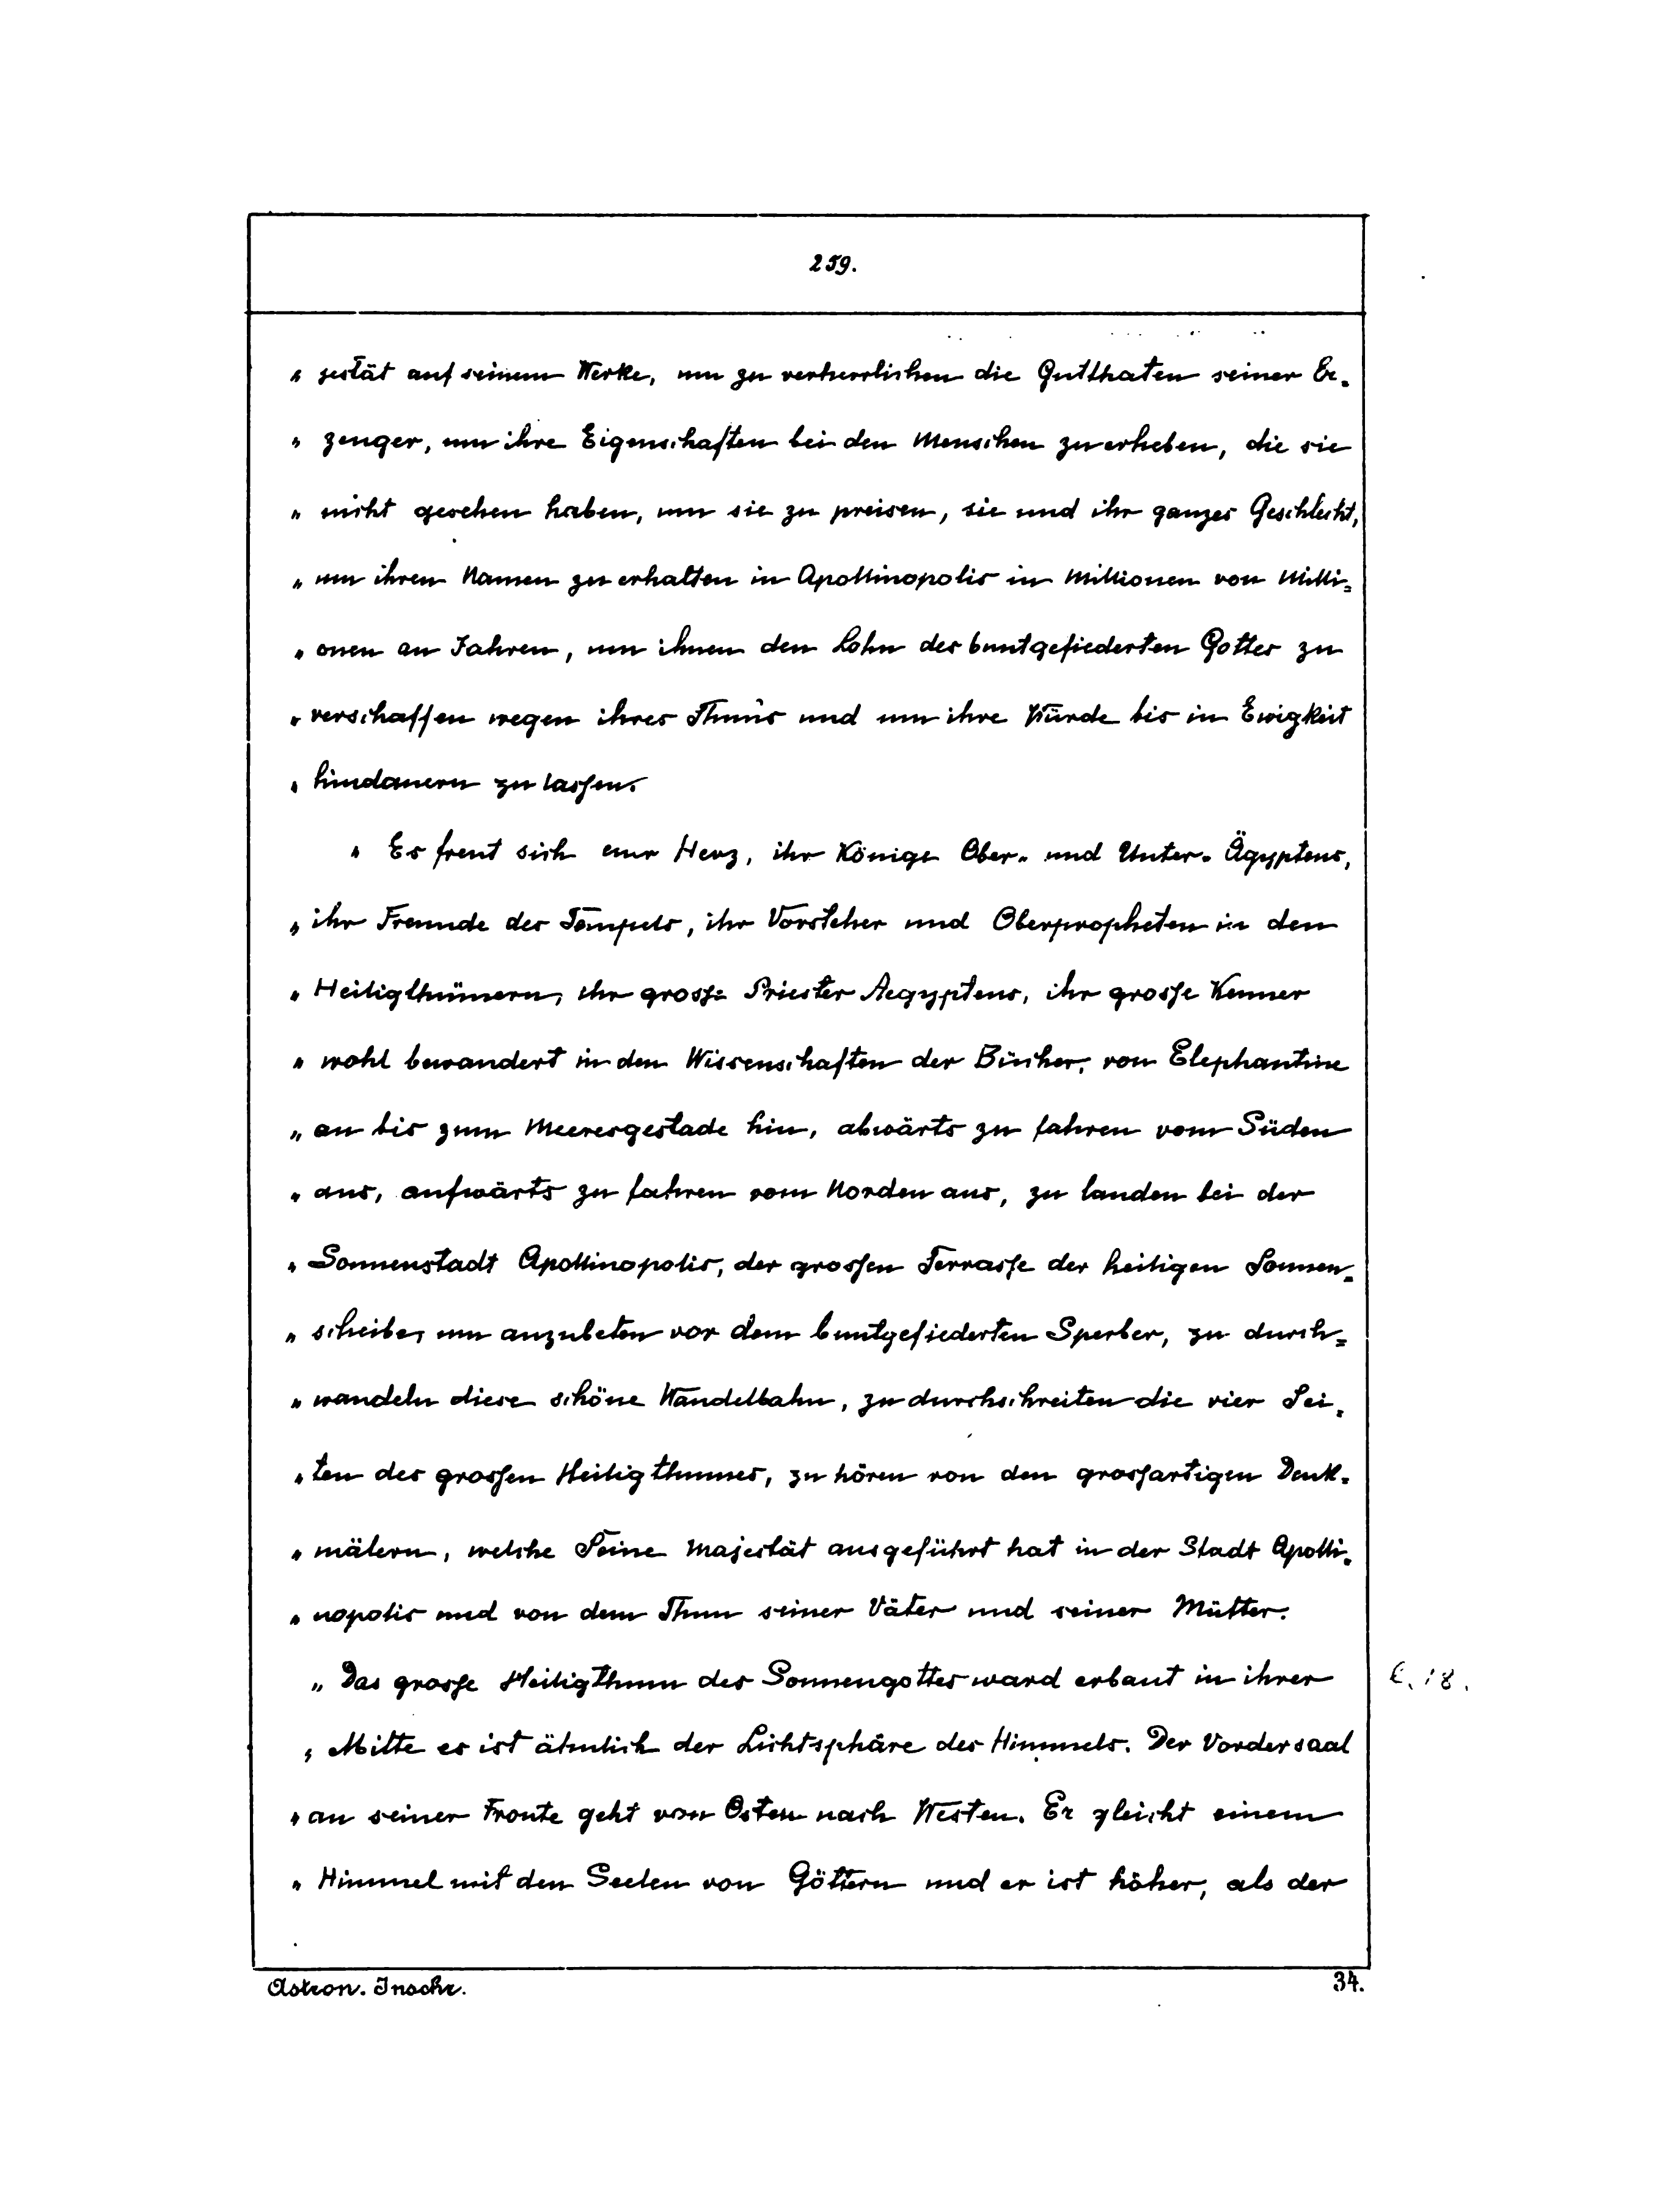 259.
„ jestät auf seinem Werke, um zu verherrlichen die Gutthaten seiner Er-
„ zeuger, um ihre Eigenschaften bei den Menschen zu erheben, die sie
„ nicht gesehen haben, um sie zu preisen, sie und ihr ganzes Geschlecht,
„ um ihren Namen zu erhalten in Apollinopolis in Millionen von Milli=
„ onen an Jahren, um ihnen den Lohn des buntgefiederten Gottes zu
„ verschaffen wegen ihres Thuns und um ihre Würde bis in Ewigkeit
„ hindauern zu lassen.
„ Es freut sich eur Herz, ihr Könige Ober- und Unter-Ägyptens,
„ ihr Freunde des Tempels, ihr Vorsteher und Oberpropheten in den
„ Heiligthümern, ihr grosse Priester Aegyptens, ihr grosse Kenner
„ wohl bewandert in den Wissenschaften der Bücher, von Elephantine
„ an bis zum Meeresgestade hin, abwärts zu fahren vom Süden
„ aus, aufwärts zu fahren vom Norden aus, zu landen bei der
„ Sonnenstadt Apollinopolis, der grossen Terrasse der heiligen Sonnen-
„ scheibe, um anzubeten vor dem buntgefiederten Sperber, zu durch=
„ wandeln diese schöne Wandelbahn, zu durchschreiten die vier Sei-
„ ten des grossen Heiligthumes, zu hören von den grossartigen Denk-
„ mälern, welche Seine Majestät ausgeführt hat in der Stadt Apolli-
„ nopolis und von dem Thun seiner Väter und seiner Mütter.
„ Das grosse Heiligthum des Sonnengottes ward erbaut in ihrer
„ Mitte es ist ähnlich der Lichtsphäre des Himmels. Der Vordersaal
„ an seiner Fronte geht von Osten nach Westen. Er gleicht einem
„ Himmel mit den Seelen von Göttern und er ist höher, als der
Astron. Inschr.
34.